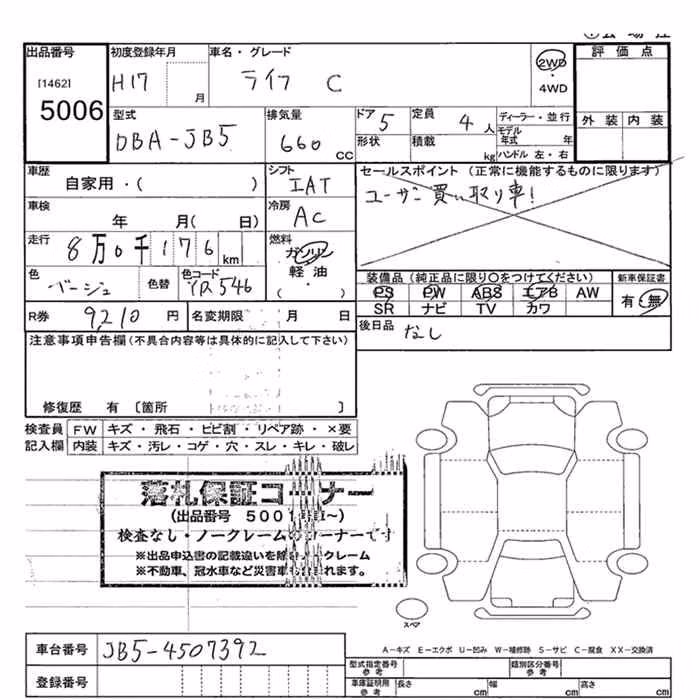 出品番号 初度登録年月 車名・グレード 評価点
[1462] H17 月 ライフ C 2WD
5006 ・
4WD
型式 排気量 ドア 定員 ディーラー・並行 外装 内装
DBA-JB5 660 CC 5 4人 モデル年式 年
形状 積載 kg ハンドル 左・右
車歴 シフト セールスポイント (正常に機能するものに限ります)
自家用・( ) IAT ユーザー買い取り車!
車検 冷房
年 月( 日) AC
走行 燃料
8万0千176km ガソリン
軽油
( )
色 色替 色コード 装備品(純正品に限り○をつけてください) 新車保証書
ベージュ YR546 PS PW ABS エアB AW 有・無
SR ナビ TV カワ
R券 9210 円 名変期限 月 日 後日品 なし
注意事項申告欄(不具合内容等は具体的に記入して下さい)
修復歴 有 [箇所 ]
検査員 FW キズ・飛石・ヒビ割・リペア跡・×要
記入欄 内装 キズ・汚レ・コゲ・穴・スレ・キレ・破レ
落札保証コーナー
(出品番号 5001番~)
検査なし・ノークレームのコーナーです
※出品申込書の記載違いを除きノークレーム
※不動車、冠水車など災害車も含まれます。
スペア
車台番号 JB5-4507392 A-キズ E-エクボ U-凹み W-補修跡 S-サビ C-腐食 XX-交換済
登録番号 型式指定番号 参考 類別区分番号 参考
車庫証明用 参考 長さ cm 幅 cm 高さ cm